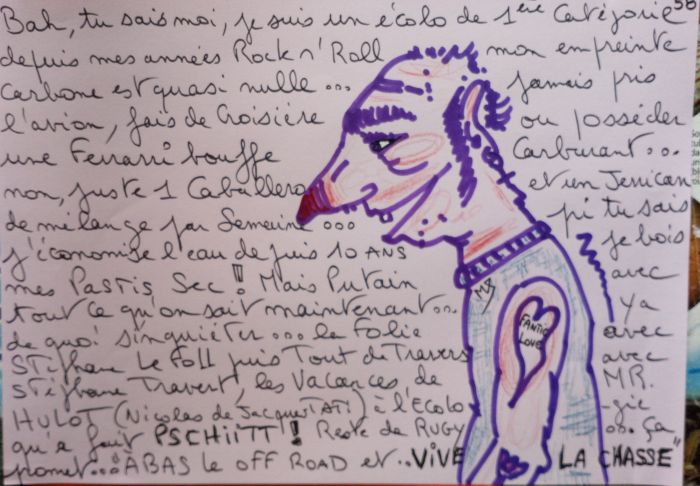 58
Bah, tu sais moi, je suis un écolo de 1ère Catégorie
depuis mes années Rock n' Roll mon empreinte
Carbone est quasi nulle ... jamais pris
l'avion, fais de Croisière ou posséder
une Ferrari bouffe Carburant ...
non, juste 1 Caballero et un Jerrican
de mélange par Semaine ... pi tu sais
j'économise l'eau depuis 10 ANS je bois
mes PASTIS Sec ! Mais Putain avec
tout ce qu'on sait maintenant .. ya
de quoi s'inquiéter ... la Folie avec
Stéphane Le Foll puis Tout de Travers avec
Stéphane Travert, les Vacances de MR.
HULOT (Nicolas de Jacques TATI) à l'Ecolo -gie
qu'a fait PSCHiiTT ! Reste de RUGY ... Ça
promet ... "À BAS le OFF ROAD et .. ViVE LA CHASSE"
FANTIC
LOVE